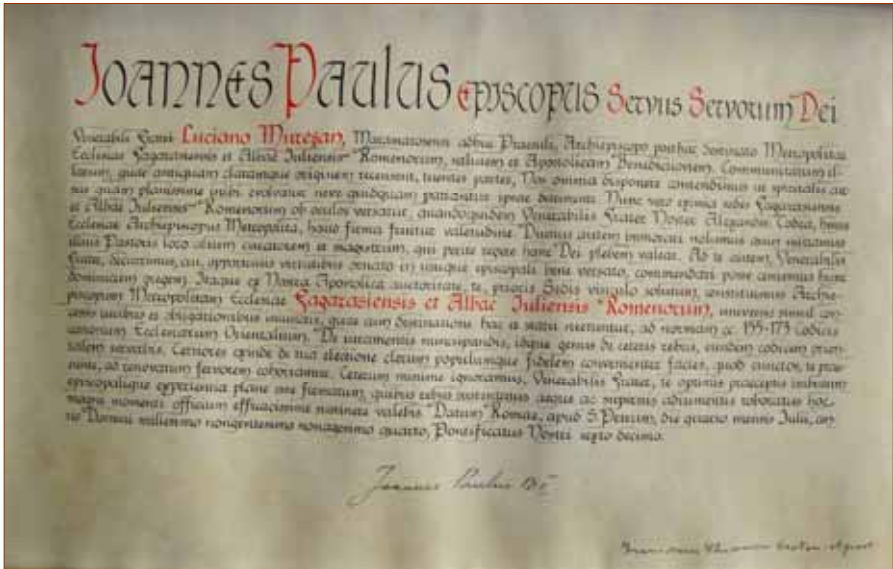 JOANNES PAULUS EPISCOPUS Servus Servorum Dei
Venerabili Fratri Luciano Mureşan, Maramarosensi adhuc Praesuli, Archiepiscopo posthac destinato Metropolitae
Ecclesiae Fagarasiensis et Albae Juliensis Romenorum, salutem et Apostolicam Benedictionem. Communitatum il-
larum, quae antiquam claramque originem recensent, tuentes partes, Nos omnia disponere contendimus ut spiritalis
sus quam planissime ibi evolvatur neve quidquam patiantur detrimenti. Nunc vero sedes Fagarasiensis
et Albae Juliensis Romenorum ob oculos versatur, quandoquidem Venerabilis Frater Noster Alexander Todea, huius
Ecclesiae Archiepiscopus Metropolita, haud firma fruitur valetudine. Diutius autem immorari nolumus quin mittamus
illius Pastoris loco alium curatorem et magistrum, qui perite regere hanc Dei plebem valeat. Ad te autem, Venerabilis
Frater, decurrimus, cui, opportunis virtutibus ornato in muneque episcopali bene versato, commendari posse censemus hunc
dominicum gregem. Itaque ex Nostra Apostolica auctoritate, te, prioris Sedis vinculo solutum, constituimus Archie-
piscopum Metropolitam Ecclesiae Fagarasiensis et Albae Juliensis Romenorum, universis simul con-
cessis iuribus et obligationibus impositis, quae cum destinatione hac et statu nectuntur, ad normam cc. 133-173 Codicis
canonum Ecclesiarum Orientalium. De iuramentis nuncupandis, idque genus de ceteris rebus, eiusdem codicum prae-
servabis. Certiores exinde de tua electione clerum populumque fidelem convenienter facies, quos cunctos, te prae-
eunte, ad renovatum fervorem cohortamur. Ceterum minime ignoramus, Venerabilis Frater, te optimis praeceptis imbutum
episcopalique experientia plane esse firmatum, quibus rebus ac supernis adiumentis roboratus hoc
magni momenti officium efficacissime sustinere valebis. Datum Romae, apud S. Petrum, die quarto mensis Julii, an-
no Domini millesimo nongentesimo nonagesimo quarto, Pontificatus Nostri sexto decimo.
Joannes Paulus